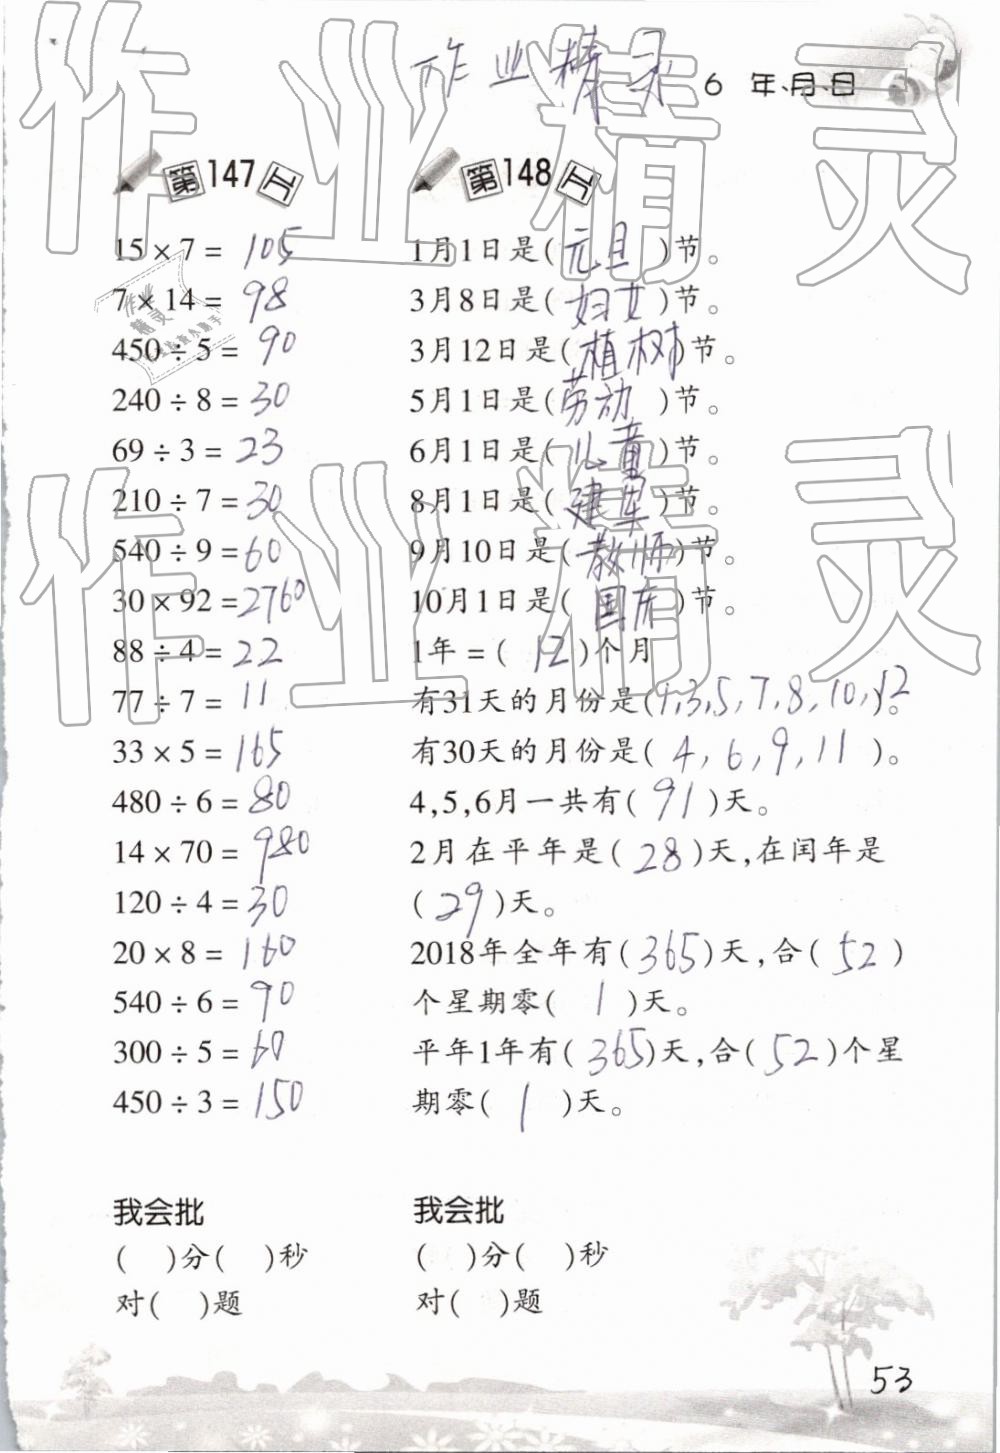 作业精灵
6 年、月、日
第147天
15 × 7 = 105
7 × 14 = 98
450 ÷ 5 = 90
240 ÷ 8 = 30
69 ÷ 3 = 23
210 ÷ 7 = 30
540 ÷ 9 = 60
30 × 92 = 2760
88 ÷ 4 = 22
77 ÷ 7 = 11
33 × 5 = 165
480 ÷ 6 = 80
14 × 70 = 980
120 ÷ 4 = 30
20 × 8 = 160
540 ÷ 6 = 90
300 ÷ 5 = 60
450 ÷ 3 = 150
我会批
( )分( )秒
对( )题
第148天
1月1日是( 元旦 )节。
3月8日是( 妇女 )节。
3月12日是( 植树 )节。
5月1日是( 劳动 )节。
6月1日是( 儿童 )节。
8月1日是( 建军 )节。
9月10日是( 教师 )节。
10月1日是( 国庆 )节。
1年 = ( 12 )个月
有31天的月份是(1,3,5,7,8,10,12)。
有30天的月份是( 4, 6, 9, 11 )。
4,5,6月一共有( 91 )天。
2月在平年是( 28 )天,在闰年是
( 29 )天。
2018年全年有( 365 )天,合( 52 )
个星期零( 1 )天。
平年1年有( 365 )天,合( 52 )个星
期零( 1 )天。
我会批
( )分( )秒
对( )题
53
作业精灵
作业精灵